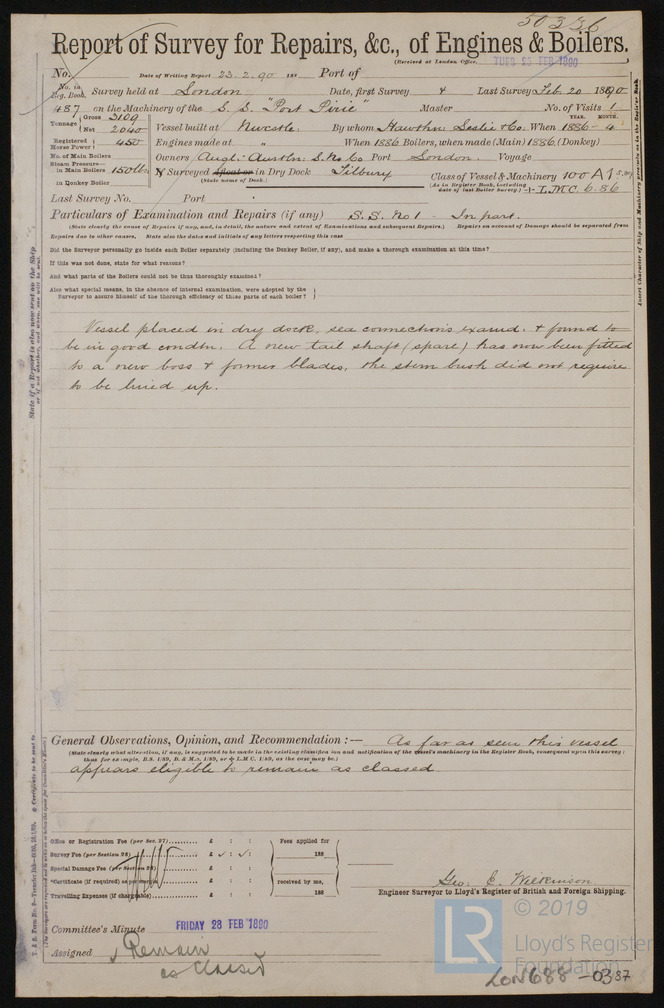 50336
Report of Survey for Repairs, &c., of Engines & Boilers.
(Received at London Office, TUES 25 FEB 1890
No. Date of Writing Report 23.2.90 188 Port of
No. in Reg. Book. Survey held at London Date, first Survey & Last Survey Feb 20 1890
487 on the Machinery of the S. S. "Port Pirie" Master No. of Visits 1
Tonnage Gross 3109 Net 2040 Vessel built at Newcstle. By whom Hawthn: Leslie & Co. When 1886 - 4 YEAR. MONTH.
Registered Horse Power 450 Engines made at " When 1886 Boilers, when made (Main) 1886 (Donkey)
No. of Main Boilers Owners Angl.-Austln: S.N. Co Port London. Voyage
Steam Pressure— in Main Boilers 150 lbs If Surveyed Afloat or in Dry Dock Tilbury
(State name of Dock.)
in Donkey Boiler Class of Vessel & Machinery 100 A1
(As in Register Book, including date of last Boiler Survey) + L.M.C. 6.86
Last Survey No. Port
Particulars of Examination and Repairs (if any) S.S. No 1 - In part.
(State clearly the cause of Repairs if any, and, in detail, the nature and extent of Examinations and subsequent Repairs.) Repairs on account of Damage should be separated from
Repairs due to other causes. State also the dates and initials of any letters respecting this case
Did the Surveyor personally go inside each Boiler separately (including the Donkey Boiler, if any), and make a thorough examination at this time?
If this was not done, state for what reasons?
And what parts of the Boilers could not be thus thoroughly examined?
Also what special means, in the absence of internal examination, were adopted by the
Surveyor to assure himself of the thorough efficiency of those parts of each boiler?
Vessel placed in dry dock, sea connections examd. & found to
be in good condtn. A new tail shaft (spare) has now been fitted
to a new boss & former blades, the stern bush did not require
to be lined up.
General Observations, Opinion, and Recommendation :— As far as seen this vessel
(State clearly what alteration, if any, is suggested to be made in the existing classification and notification of the vessel's machinery in the Register Book, consequent upon this survey;
thus for example, B.S. 1/89, B. & M.S. 1/89, or + L.M.C. 1/89, as the case may be.)
appears eligible to remain as classed
Office or Registration Fee (per Sec. 27) £ : : Fees applied for
Survey Fee (per Section 28) £ : : 188
Special Damage Fee (per Section 28) £ : :
Certificate (if required) as per margin £ : : received by me,
Travelling Expenses (if chargeable) £ : : 188
Geo: E. Wilkinson
Engineer Surveyor to Lloyd's Register of British and Foreign Shipping.
Committee's Minute FRIDAY 28 FEB 1890
Assigned Remain
as classed
LR
© 2019
Lloyd's Register
Foundation
LON688-0387